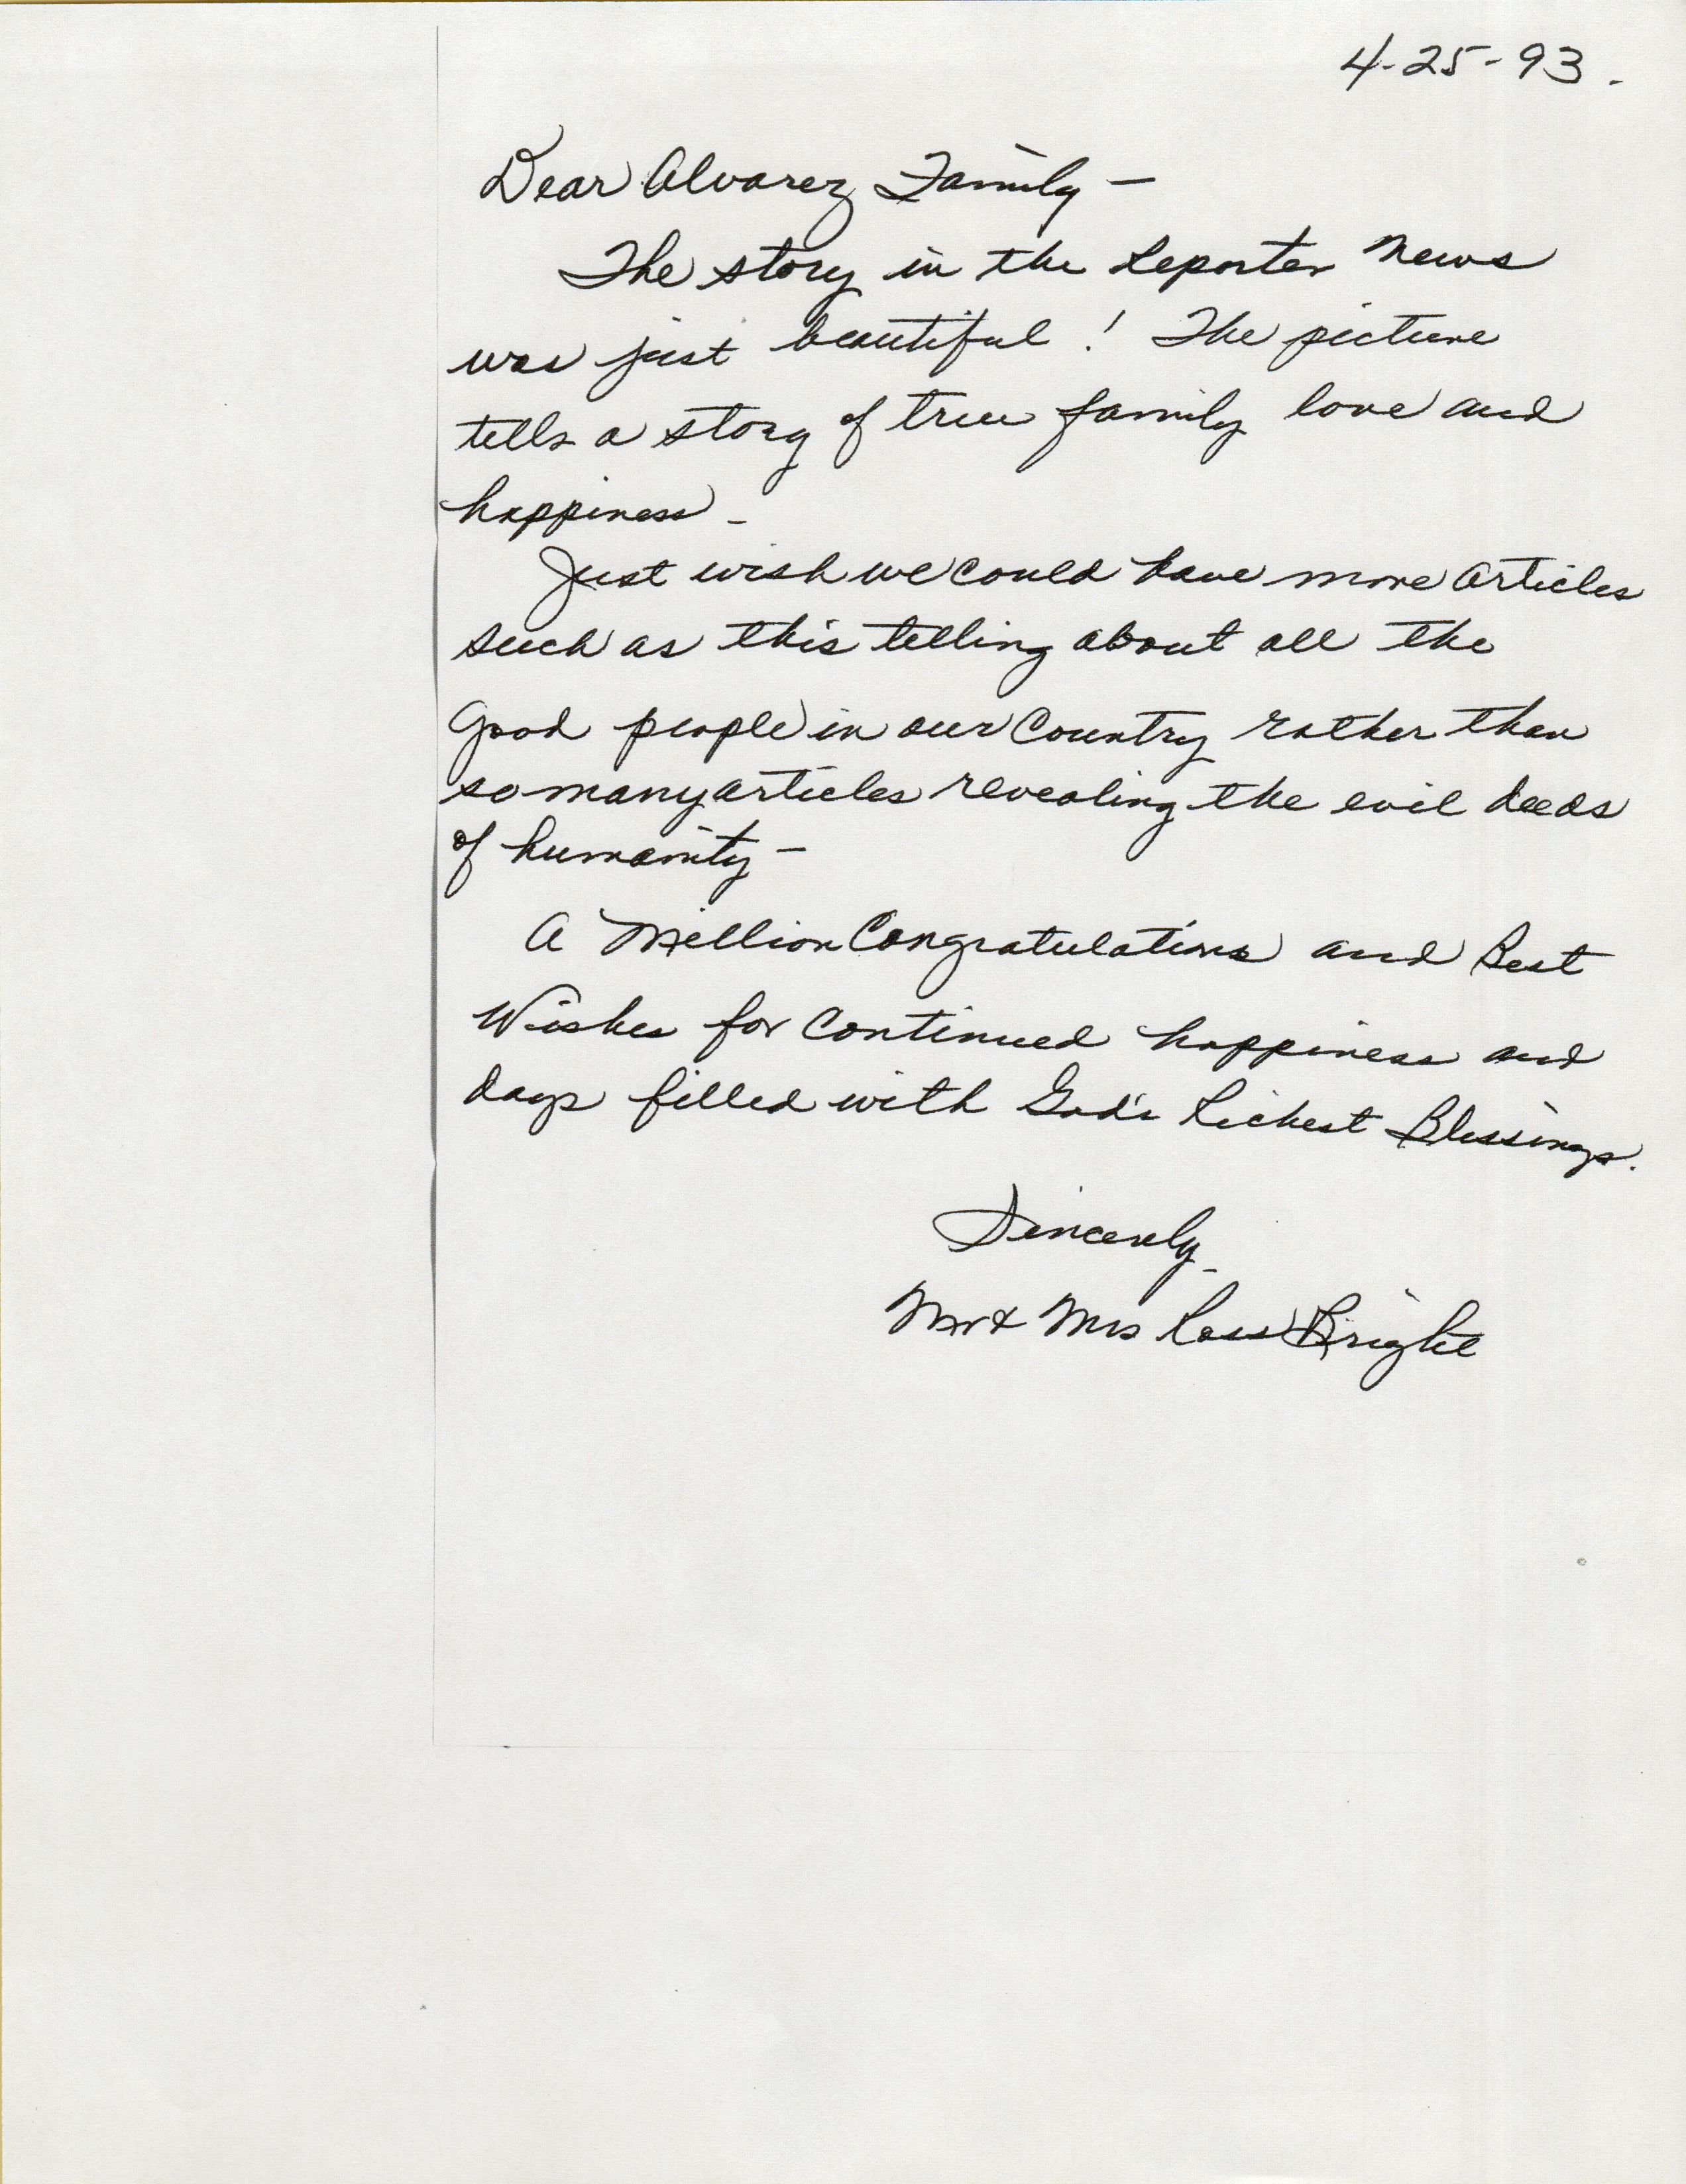 4-25-93.
Dear Alvarez Family —
The story in the Reporter News
was just beautiful! The picture
tells a story of true family love and
happiness -
Just wish we could have more articles
such as this telling about all the
Good people in our Country rather than
so many articles revealing the evil deeds
of humanity -
A Million Congratulations and Best
Wishes for Continued happiness and
days filled with God's Richest Blessings.
Sincerely
Mr & Mrs Ross Bright